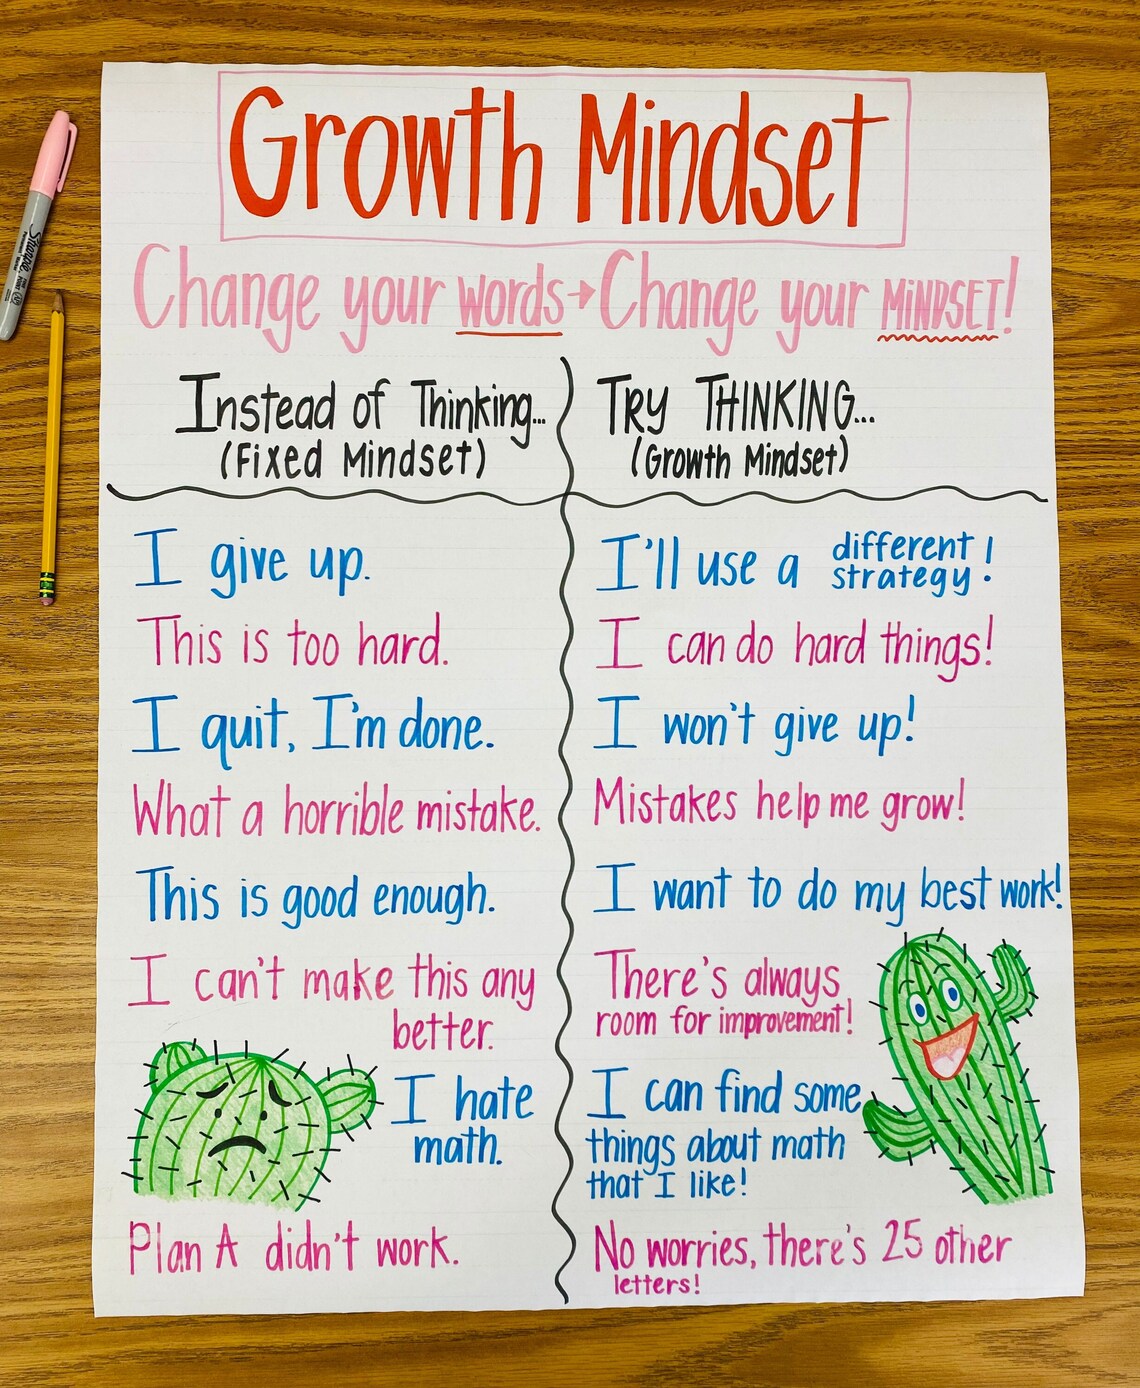 Growth Mindset
Change your words → Change your MiNDSET!
Instead of Thinking...
(Fixed Mindset)
TRY THINKING...
(Growth Mindset)
I give up.
I'll use a different
strategy!
This is too hard.
I can do hard things!
I quit, I'm done.
I won't give up!
What a horrible mistake.
Mistakes help me grow!
This is good enough.
I want to do my best work!
I can't make this any
better.
There's always
room for improvement!
I hate
math.
I can find some
things about math
that I like!
Plan A didn't work.
No worries, there's 25 other
letters!
Sharpie